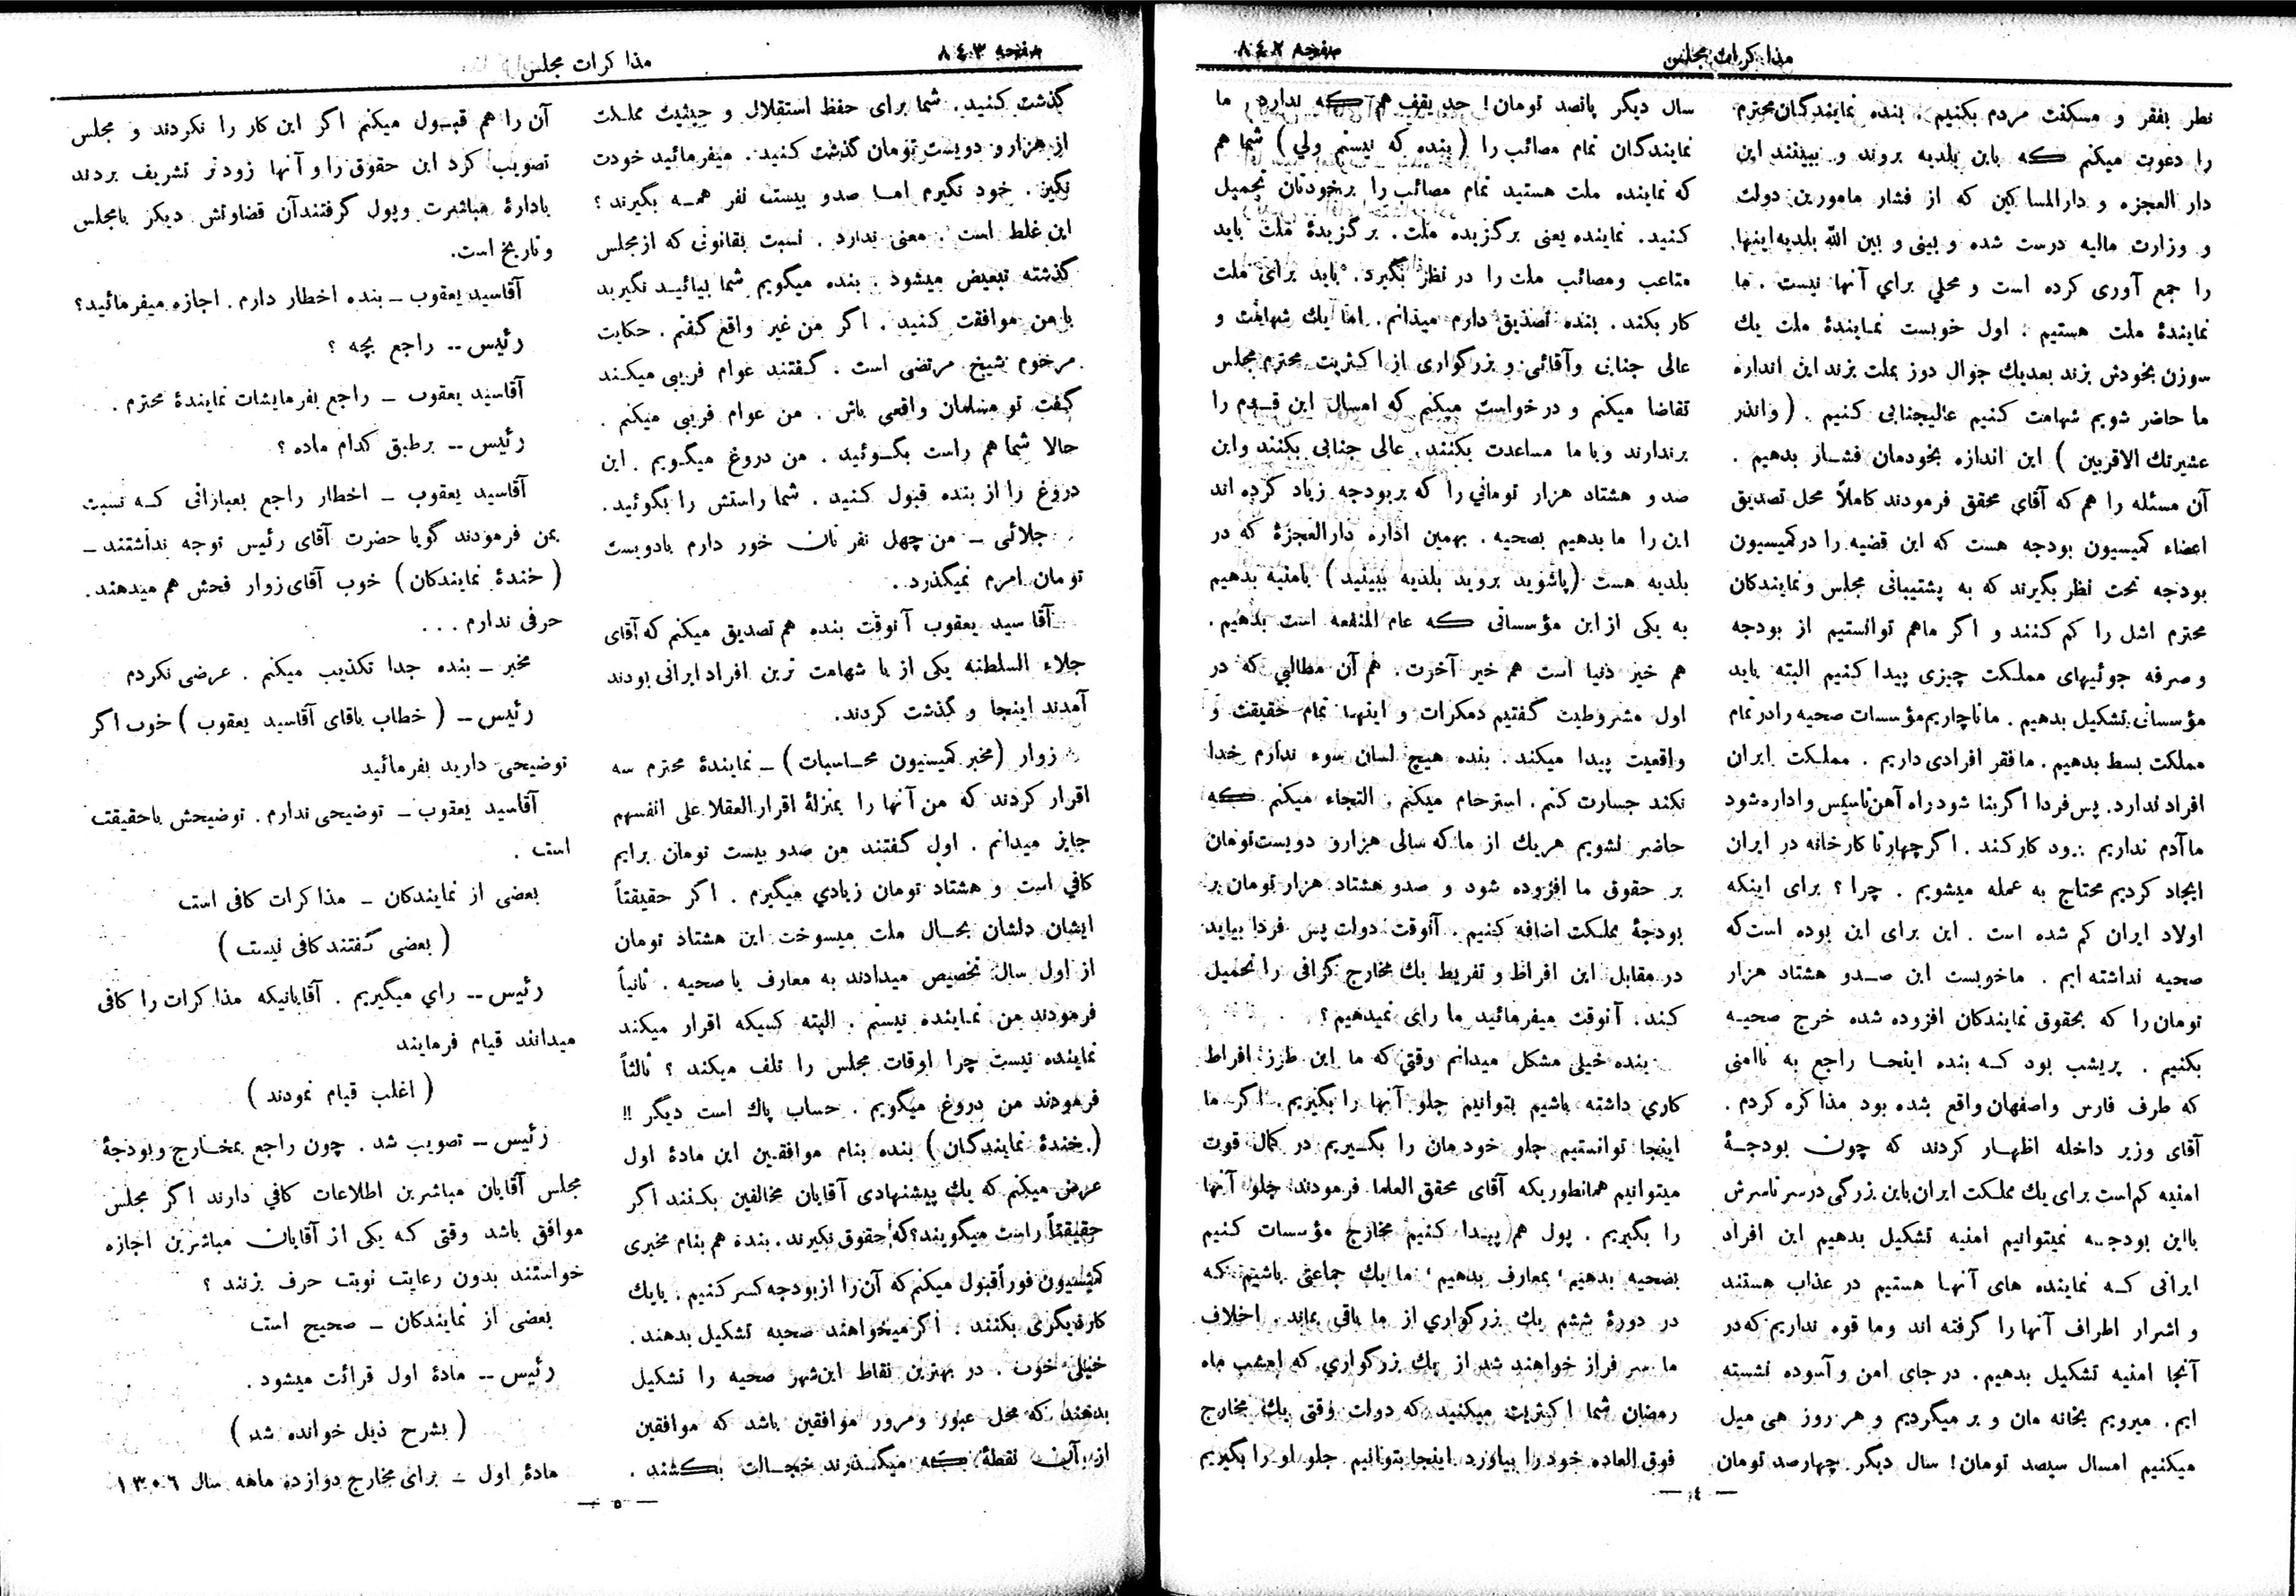 مذاکرات مجلس
صفحه ٨٤٢
نظر بفقر و مسکنت مردم بکنیم . بنده نمایندگان محترم
را دعوت میکنم که باین بلدیه بروند و ببینند این
دار العجزه و دارالمساکین که از فشار مامورین دولت
و وزارت مالیه درست شده و بینی و بین الله بلدیه اینها
را جمع آوری کرده است و محلی برای آنها نیست . ما
نمایندهٔ ملت هستیم . اول خوبست نمایندهٔ ملت یك
سوزن بخودش بزند بعد یك جوال دوز بملت بزند این اندازه
ما حاضر شویم شهامت کنیم عالیجنابی کنیم . ( وانذر
عشیرتك الاقربین ) این اندازه بخودمان فشار بدهیم .
آن مسئله را هم که آقای محقق فرمودند کاملاً محل تصدیق
اعضاء کمیسیون بودجه هست که این قضیه را در کمیسیون
بودجه تحت نظر بگیرند که به پشتیبانی مجلس و نمایندگان
محترم اشل را کم کنند و اگر ماهم توانستیم از بودجه
و صرفه جوئیهای مملکت چیزی پیدا کنیم البته باید
مؤسساتی تشکیل بدهیم . ما ناچاریم مؤسسات صحیه را در تمام
مملکت بسط بدهیم . ما فقر افرادی داریم . مملکت ایران
افراد ندارد. پس فردا اگر بنا شود راه آهن تاسیس و اداره شود
ما آدم نداریم برود کار کند . اگر چهار تا کارخانه در ایران
ایجاد کردیم محتاج به عمله میشویم . چرا ؟ برای اینکه
اولاد ایران کم شده است . این برای این بوده است که
صحیه نداشته ایم . ما خوبست این صدو هشتاد هزار
تومان را که بحقوق نمایندگان افزوده شده خرج صحیه
بکنیم . پریشب بود که بنده اینجا راجع به ناامنی
که طرف فارس و اصفهان واقع شده بود مذاکره کردم .
آقای وزیر داخله اظهار کردند که چون بودجهٔ
امنیه کم است برای یك مملکت ایران باین بزرگی در سر تاسرش
بااین بودجه نمیتوانیم امنیه تشکیل بدهیم این افراد
ایرانی که نماینده های آنها هستیم در عذاب هستند
و اشرار اطراف آنها را گرفته اند وما قوه نداریم که در
آنجا امنیه تشکیل بدهیم . در جای امن و آسوده نشسته
ایم . میرویم بخانه مان و بر میگردیم و هر روز هی میل
میکنیم امسال سیصد تومان! سال دیگر چهارصد تومان
سال دیگر پانصد تومان! حد یقف هم که ندارد ما
نمایندگان تمام مصائب را ( بنده که نیستم ولی ) شما هم
که نماینده ملت هستید تمام مصائب را برخودتان تحمیل
کنید. نماینده یعنی برگزیده ملت. برگزیدهٔ ملت باید
متاعب ومصائب ملت را در نظر بگیرد. باید برای ملت
کار بکند . بنده تصدیق دارم میدانم . اما یك شهامت و
عالی جنابی وآقائی و بزرگواری از اکثریت محترم مجلس
تقاضا میکنم و درخواست میکنم که امسال این قدم را
برندارند وبا ما مساعدت بکنند، عالی جنابی بکنند واین
صد و هشتاد هزار تومانی را که بر بودجه زیاد کرده اند
این را ما بدهیم بصحیه . بهمین اداره دارالعجزهٔ که در
بلدیه هست (پاشوید بروید بلدیه ببینید) بامنیه بدهیم
به یکی از این مؤسساتی که عام المنفعه است بدهیم .
هم خیر دنیا است هم خیر آخرت . هم آن مطالبی که در
اول مشروطیت گفتیم دمکرات و اینها تمام حقیقت و
واقعیت پیدا میکند . بنده هیچ لسان سوء ندارم خدا
نکند جسارت کنم . استرحام میکنم . التجاء میکنم که
حاضر نشویم هریك از ما که سالی هزارو دویست تومان
بر حقوق ما افزوده شود و صدو هشتاد هزار تومان بر
بودجهٔ مملکت اضافه کنیم . آنوقت دولت پس فردا بیاید
در مقابل این افراط و تفریط یك مخارج گزافی را تحمیل
کند . آنوقت میفرمائید ما رای نمیدهیم ؟
بنده خیلی مشکل میدانم وقتی که ما این طرز افراط
کاری داشته باشیم بتوانیم جلو آنها را بگیریم . اگر ما
اینجا توانستیم جلو خودمان را بگیریم در کمال قوت
میتوانیم همانطوریکه آقای محقق العلما فرمودند جلو آنها
را بگیریم . پول هم پیدا کنیم مخارج مؤسسات کنیم
بصحیه بدهیم ، بمعارف بدهیم ، ما یك جماعتی باشیم که
در دورهٔ ششم یك بزرگواری از ما باقی بماند . اخلاف
ما سر فراز خواهند شد از یك بزرگواری که امشب ماه
رمضان شما اکثریت میکنید که دولت وقتی یك مخارج
فوق العاده خود را بیاورد اینجا بتوانیم جلو او را بگیریم
— ٤ —
صفحه ٨٤٣
مذاکرات مجلس
گذشت کنید . شما برای حفظ استقلال و حیثیت مملکت
از هزار و دویست تومان گذشت کنید . میفرمائید خودت
نگیر . خود نگیرم اما صدو بیست نفر همه بگیرند ؟
این غلط است . معنی ندارد . نسبت بقانونی که از مجلس
گذشته تبعیض میشود . بنده میگویم شما بیائید نگیرید
با من موافقت کنید . اگر من غیر واقع گفتم . حکایت
مرحوم شیخ مرتضی است . گفتند عوام فریبی میکند
گفت تو مسلمان واقعی باش . من عوام فریبی میکنم .
حالا شما هم راست بگوئید . من دروغ میگویم . این
دروغ را از بنده قبول کنید . شما راستش را بگوئید .
جلائی ـ من چهل نفر نان خور دارم بادویست
تومان امرم نمیگذرد .
آقا سید یعقوب آنوقت بنده هم تصدیق میکنم که آقای
جلاء السلطنه یکی از با شهامت ترین افراد ایرانی بودند
آمدند اینجا و گذشت کردند.
زوار (مخبر کمیسیون محاسبات) ـ نمایندهٔ محترم سه
اقرار کردند که من آنها را بمنزلهٔ اقرار العقلا علی انفسهم
جایز میدانم . اول گفتند من صدو بیست تومان برایم
کافی است و هشتاد تومان زیادی میگیرم . اگر حقیقتاً
ایشان دلشان بحال ملت میسوخت این هشتاد تومان
از اول سال تخصیص میدادند به معارف یا صحیه . ثانیاً
فرمودند من نماینده نیستم . البته کسیکه اقرار میکند
نماینده نیست چرا اوقات مجلس را تلف میکند ؟ ثالثاً
فرمودند من دروغ میگویم . حساب پاك است دیگر !!
( خندهٔ نمایندگان ) بنده بنام موافقین این مادهٔ اول
عرض میکنم که یك پیشنهادی آقایان مخالفین بکنند اگر
حقیقتاً راست میگویند؟ که حقوق نگیرند . بنده هم بنام مخبری
کمیسیون فوراً قبول میکنم که آن را از بودجه کسر کنیم . یا یك
کار دیگری بکنند . اگر میخواهند صحیه تشکیل بدهند .
خیلی خوب . در بهترین نقاط این شهر صحیه را تشکیل
بدهند که محل عبور و مرور موافقین باشد که موافقین
از آن نقطهٔ که میگذرند خجالت بکشند .
آن را هم قبول میکنم اگر این کار را نکردند و مجلس
تصویب کرد این حقوق را و آنها زودتر تشریف بردند
بادارهٔ مباشرت وپول گرفتند آن قضاوتش دیگر بامجلس
و تاریخ است.
آقاسید یعقوب ـ بنده اخطار دارم . اجازه میفرمائید؟
رئیس -- راجع بچه ؟
آقاسید یعقوب ـ راجع بفرمایشات نمایندهٔ محترم .
رئیس -- برطبق کدام ماده ؟
آقاسید یعقوب ـ اخطار راجع بعباراتی که نسبت
بمن فرمودند گویا حضرت آقای رئیس توجه نداشتند ـ
( خندهٔ نمایندگان ) خوب آقای زوار فحش هم میدهند .
حرفی ندارم . . .
مخبر ـ بنده جدا تکذیب میکنم . عرضی نکردم
رئیس -- ( خطاب باقای آقاسید یعقوب ) خوب اگر
توضیحی دارید بفرمائید
آقاسید یعقوب ـ توضیحی ندارم . توضیحش باحقیقت
است .
بعضی از نمایندگان ـ مذاکرات کافی است
( بعضی گفتند کافی نیست )
رئیس -- رای میگیریم . آقایانیکه مذاکرات را کافی
میدانند قیام فرمایند
( اغلب قیام نمودند )
رئیس -- تصویب شد . چون راجع بمخارج و بودجهٔ
مجلس آقایان مباشرین اطلاعات کافی دارند اگر مجلس
موافق باشد وقتی که یکی از آقایان مباشرین اجازه
خواستند بدون رعایت نوبت حرف بزنند ؟
بعضی از نمایندگان ـ صحیح است
رئیس -- مادهٔ اول قرائت میشود .
( بشرح ذیل خوانده شد )
مادهٔ اول ـ برای مخارج دوازده ماهه سال ١٣٠٦
— ٥ —